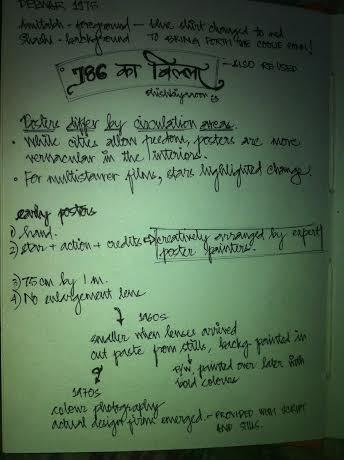 DEEWAR 1975
Amitabh - foreground - blue shirt changed to red
Shashi - background TO BRING FORTH THE COOLIE
786 का बिल्ला - ALSO RE USED
Posters differ by circulation areas.
• While cities allow freedom, posters are more
vernacular in the interiors.
• For multistarrer films, stars highlighted change.
early posters
1) hand.
2) star + action + credits creatively arranged by expert
poster painters.
3) 75 cm by 1 m.
4) No enlargement lens
1960s
smaller when lenses arrived
cut paste from stills, backg painted in
B/W, printed over later with
bold colours
1970s
colour photography
actual design firms emerged. - PROVIDED WITH SCRIPT
AND STILLS.